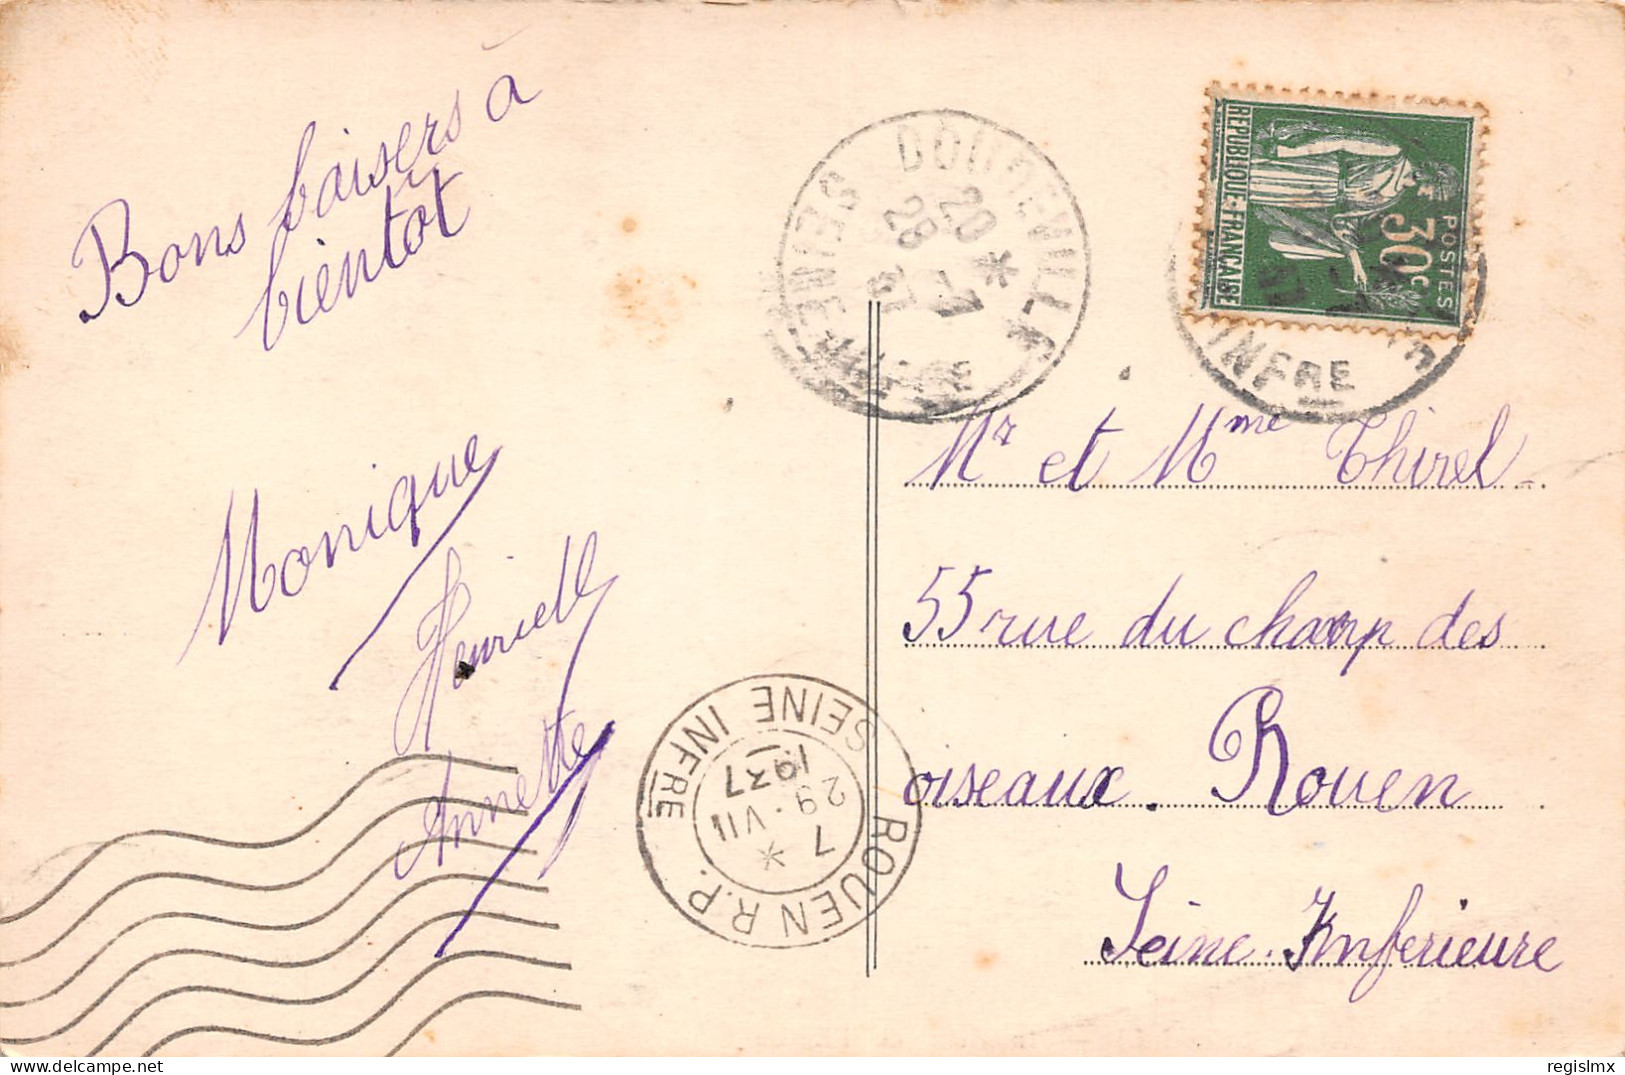 Bons baisers à
bientôt
Monique
Henriette
Annette
DOUDEVILLE
20 *
28 -7
37
SEINE-INFRE
REPUBLIQUE-FRANÇAISE
POSTES
30c
INFRE
Mr et Mme Thirel
55 rue du champ des
oiseaux. Rouen
Seine-Inferieure
ROUEN R.P.
7 *
29 · VII
1937
SEINE INFRE
regislmx